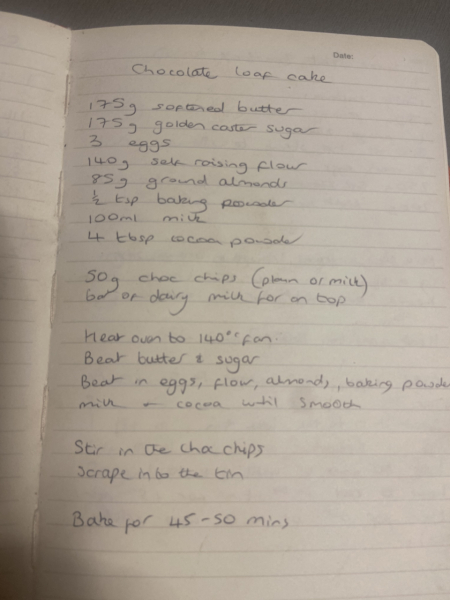 Date:
Chocolate loaf cake
175g softened butter
175g golden caster sugar
3 eggs
140g self raising flour
85g ground almonds
½ tsp baking powder
100ml milk
4 tbsp cocoa powder
50g choc chips (plain or milk)
bar of dairy milk for on top
Heat oven to 140°c fan.
Beat butter & sugar
Beat in eggs, flour, almonds, baking powde
milk + cocoa until smooth
Stir in the choc chips
Scrape into the tin
Bake for 45-50 mins